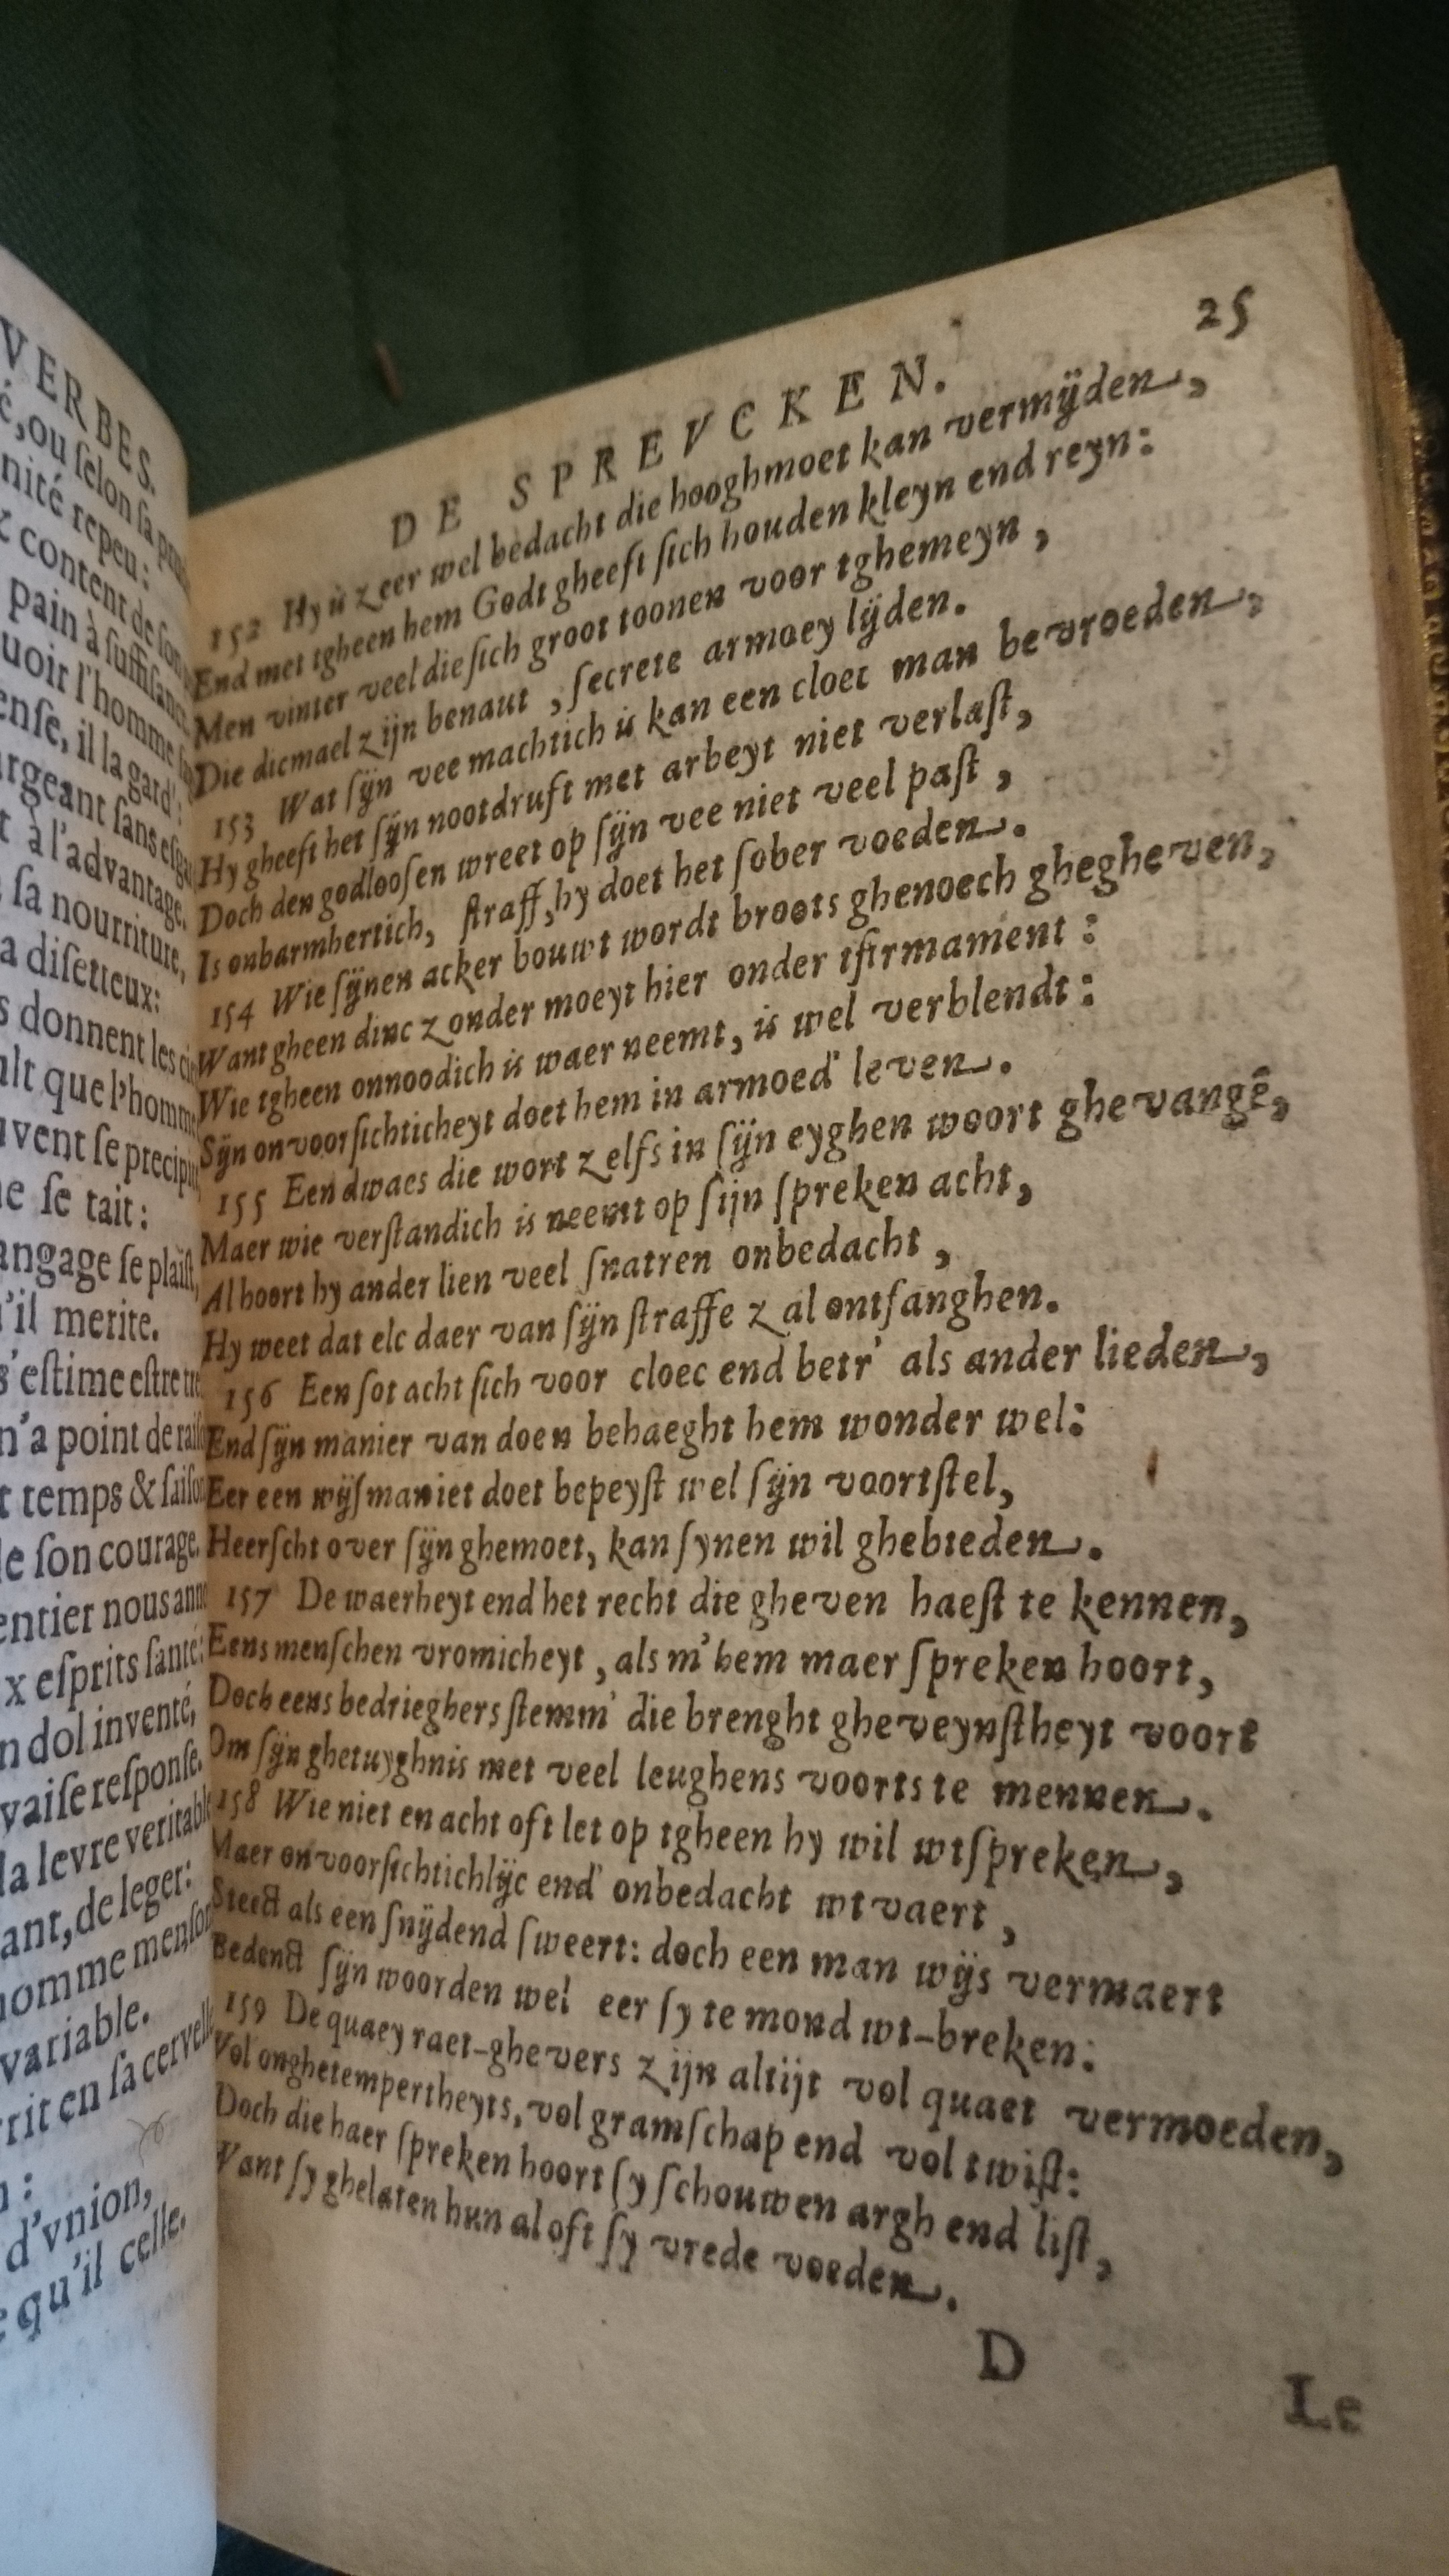 VERBES.
é, ou ſelon ſa
nité repeu:
content de ſon
pain à ſuffiſanc
uoir l'homme
enſe, il la gard':
argeant ſans eſga
t à l'advantage.
ſa nourriture,
a diſetteux:
s donnent les
ult que l'homme
uvent ſe precipit
ne ſe tait:
angage ſe plaiſt,
u'il merite.
s'eſtime eſtre
n'a point de raiſ
t temps & ſaiſon
de ſon courage.
entier nous
x eſprits ſanté:
n dol inventé,
vaiſe reſponſe.
la levre veritable
ant, de leger:
homme menſon
variable.
rit en ſa cervelle
n:
d'vnion,
qu'il celle.
25
DE SPREVCKEN.
152 Hy is zeer wel bedacht die hooghmoet kan vermijden,
End met tgheen hem Godt gheeft ſich houden kleyn end reyn:
Men vinter veel die ſich groot toonen voor tghemeyn,
Die dicmael zijn benaut, ſecrete armoey lijden.
153 Wat ſijn vee machtich is kan een cloec man bevroeden,
Hy gheeft het ſijn nootdruft met arbeyt niet verlaſt,
Doch den godlooſen wreet op ſijn vee niet veel paſt,
Is onbarmhertich, ſtraff, hy doet het ſober voeden.
154 Wie ſijnen acker bouwt wordt broots ghenoech ghegheven,
Want gheen dinc zonder moeyt hier onder tfirmament:
Wie tgheen onnoodich is waer neemt, is wel verblendt:
Sijn onvoorſichticheyt doet hem in armoed' leven.
155 Een dwaes die wort zelfs in ſijn eyghen woort ghevangē,
Maer wie verſtandich is neemt op ſijn ſpreken acht,
Al hoort hy ander lien veel ſnatren onbedacht,
Hy weet dat elc daer van ſijn ſtraffe zal ontfanghen.
156 Een ſot acht ſich voor cloec end betr' als ander lieden,
End ſijn manier van doen behaeght hem wonder wel:
Eer een wijſ man iet doet bepeyſt wel ſijn voortſtel,
Heerſcht over ſijn ghemoet, kan ſynen wil ghebieden.
157 De waerheyt end het recht die gheven haeſt te kennen,
Eens menſchen vromicheyt, als m'hem maer ſpreken hoort,
Doch eens bedrieghers ſtemm' die brenght gheveynſtheyt voort
Om ſijn ghetuyghnis met veel leughens voorts te mennen.
158 Wie niet en acht oft let op tgheen hy wil wtſpreken,
Maer onvoorſichtichlijc end' onbedacht wtvaert,
Steect als een ſnijdend ſweert: doch een man wijs vermaert
Bedenct ſijn woorden wel eer ſy te mond wt-breken:
159 De quaey raet-ghevers zijn altijt vol quaet vermoeden,
Vol onghetempertheyts, vol gramſchap end vol twiſt:
Doch die haer ſpreken hoort ſy ſchouwen argh end liſt,
Want ſy ghelaten hun al oft ſy vrede voeden.
D
Le